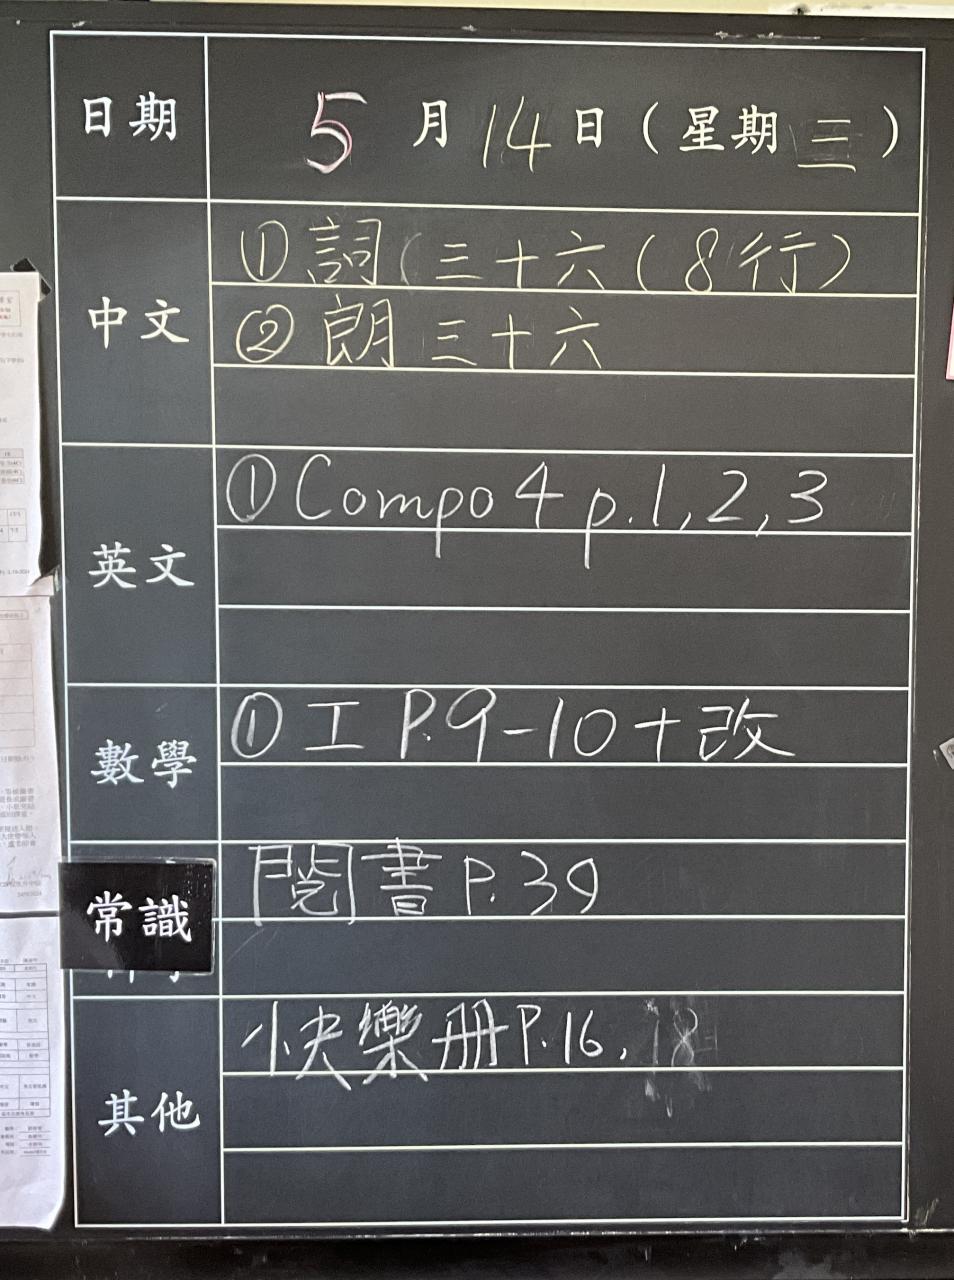 日期 5月14日(星期三)
中文
①詞(三十六(8行)
②朗三十六
英文
①Compo 4 p.1,2,3
數學
①工 P.9-10+改
常識
閱書P.39
其他
小快樂冊P.16, 18